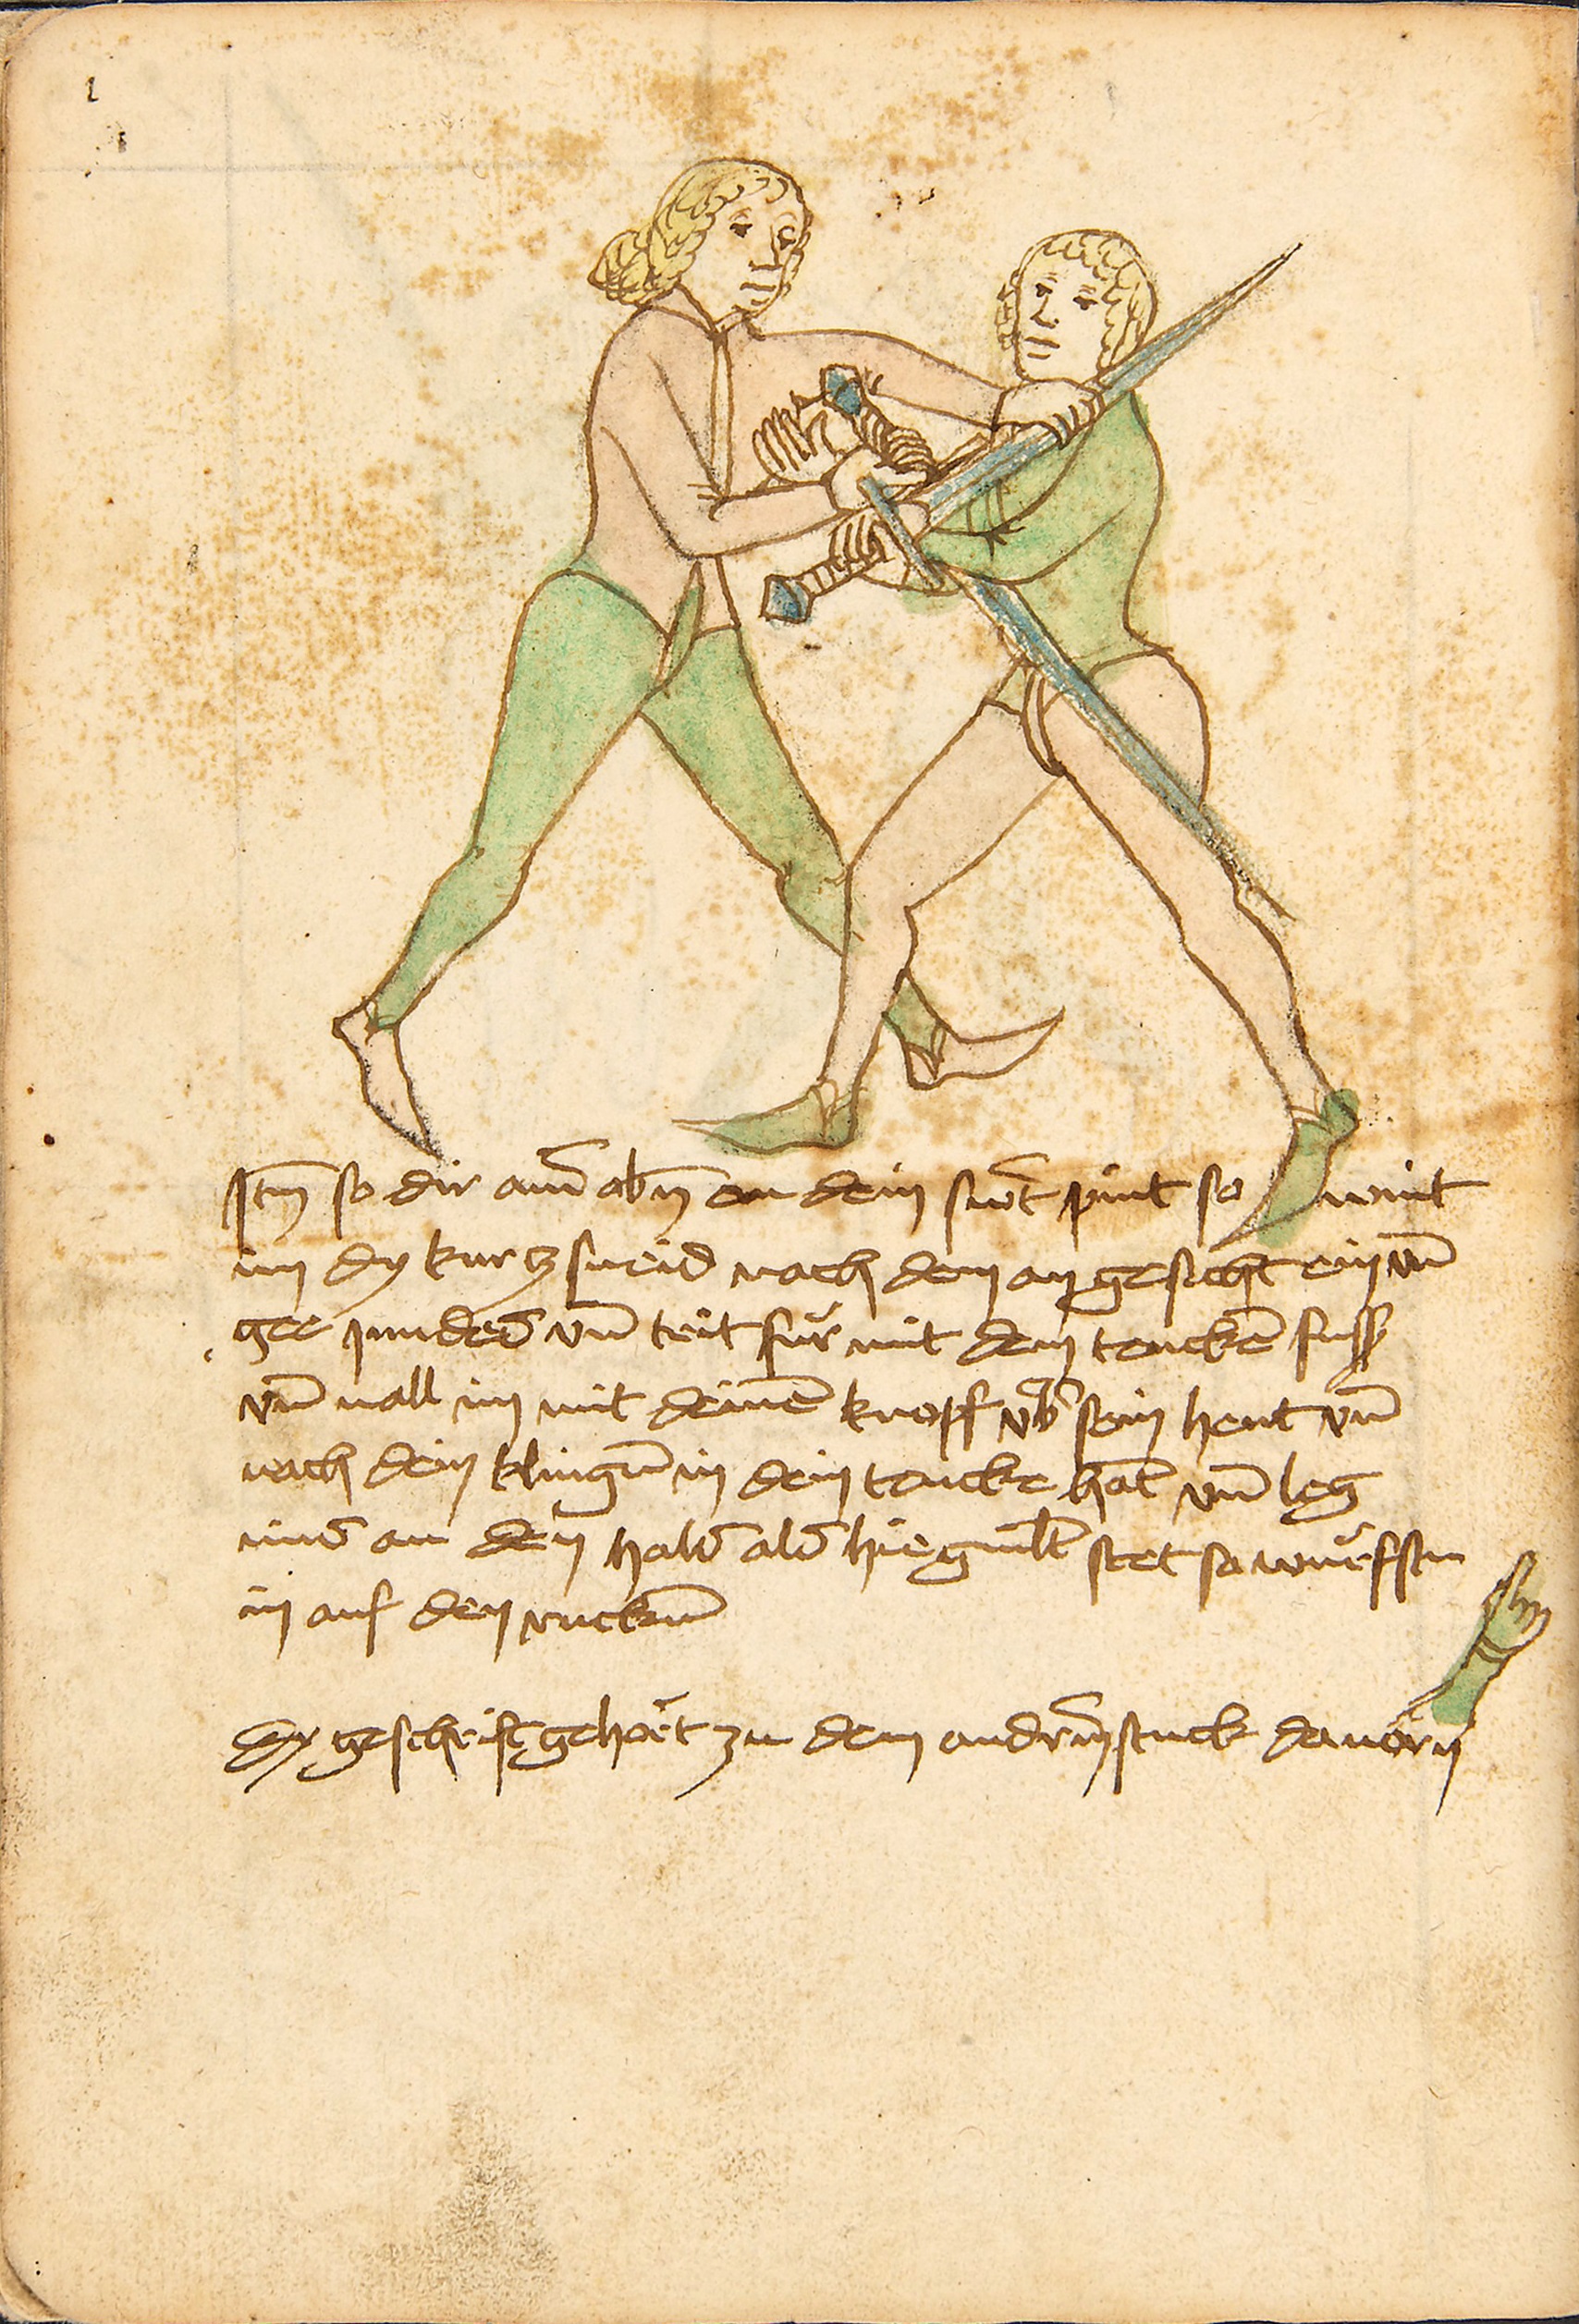 Itm so dir ainr obn an dein swert pint so wint
im dy kurtz sneid nach dem angesicht ein vnd
gee jnndes vnd trit für mit dem tencken fuss
vnd vall im mit deinem knopf vber sein hent vnd
nach dein klingen in dein tencke hant vnd leg
ims an den hals als hie gmalt stet so würfstu
in auf den rucken
Dy geschrift gehört zu dem andern stuck dauorn